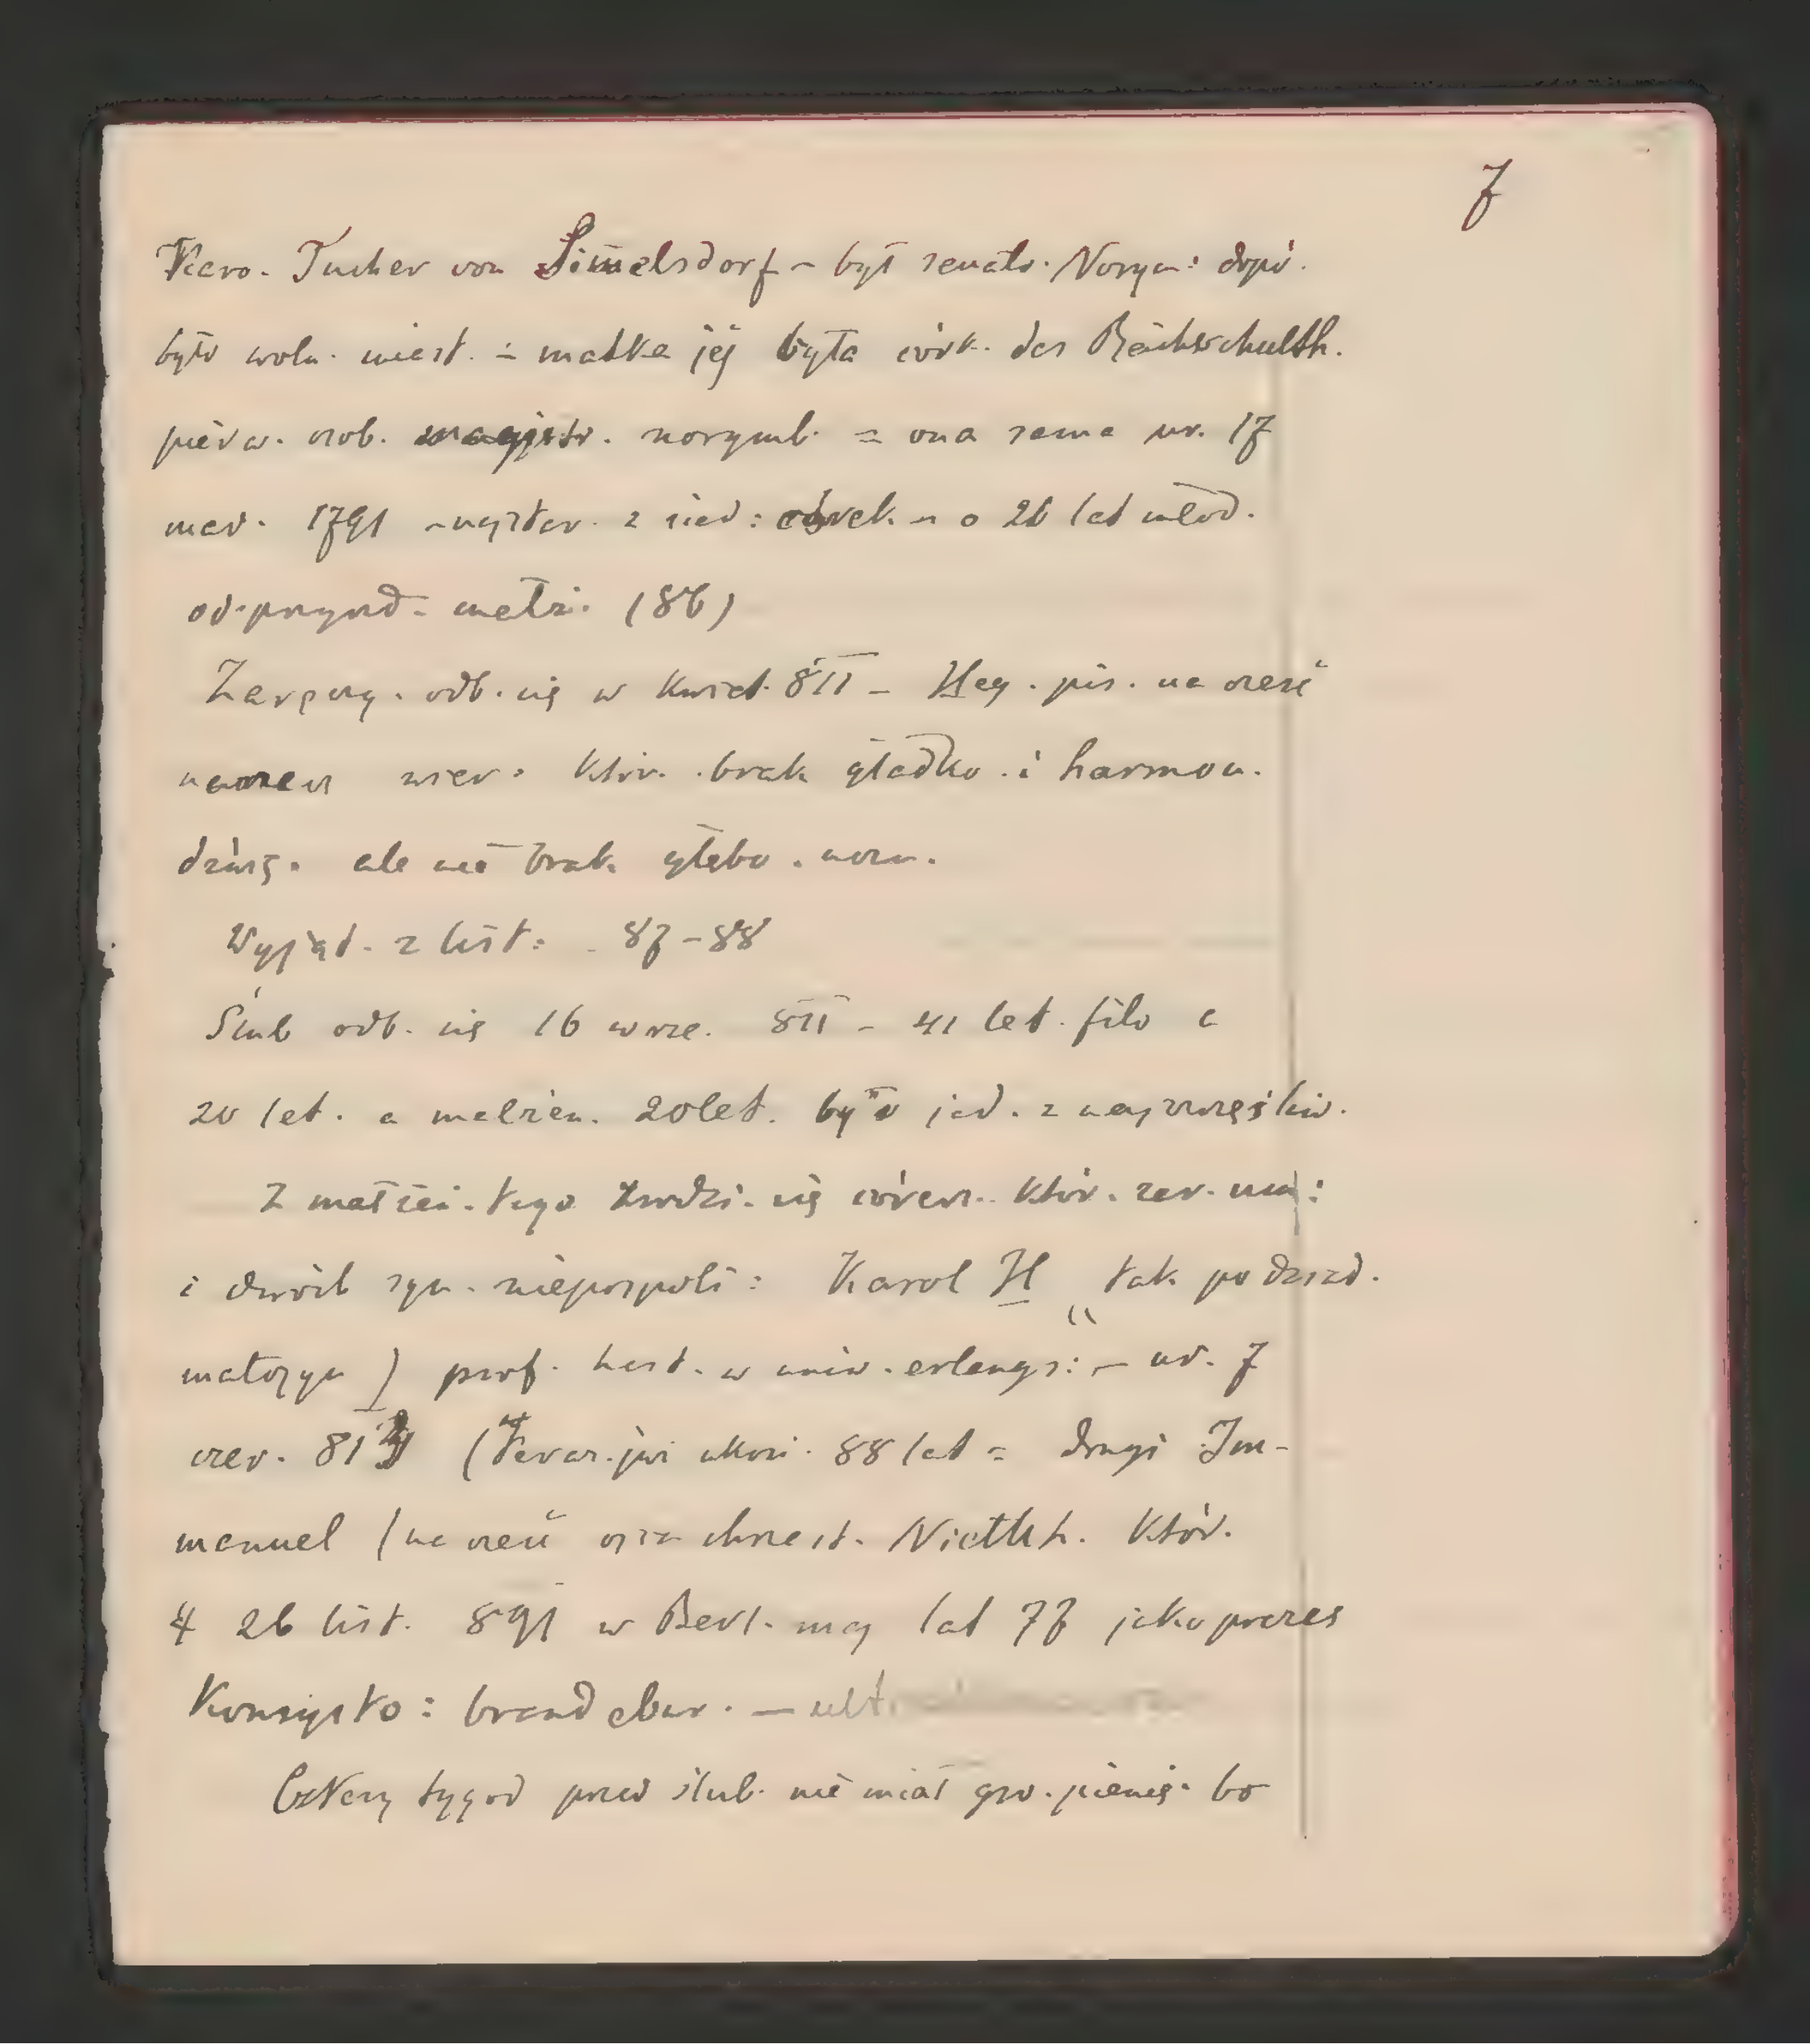 7
Karo. Tucher von Simelsdorf – był senato. Norym: dopó.
było woln. miast. – matka jej była córk. des Reichsschulth.
pierw. osob. magistr. norymb. = ona sama ur. 17
mar. 1791 – najstar. z sied: córek – o 26 lat młod.
od przysz. – małż. (86)
Zaręczy. odb. się w kwiet. 811 – Heg. pis. na cześć
narzecz wier. któr. brak gładko. i harmon.
dźwię. ale nie brak głębo. uczu.
Wyjąt. z list: 87–88
Ślub odb. się 16 wrze. 811 – 41 let. filo a
20 let. a małżeń. 20 let. było jed. z najszczęśliw.
Z małżeń. tego zrodzi. się córecz. któr. zar. um:
i dwóch syn. niepospoli: Karol H (tak po dziad.
matczyn) prof. hist. w uniw. erlangs: – ur. 7
czer. 813 (Teraz. już ukoń. 88 lat = drugi Im-
manuel (na cześć ojca chrzest. Nieth. któr.
26 list. 891 w Berl. maj lat 77 jako prezes
Konsysto: brandebur. – ult.
Cztery tygod przed ślub. nie miał gro. pienię. bo